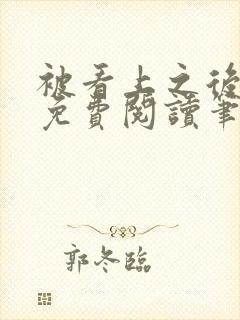 被看上之後
免費閱讀筆
郭冬臨